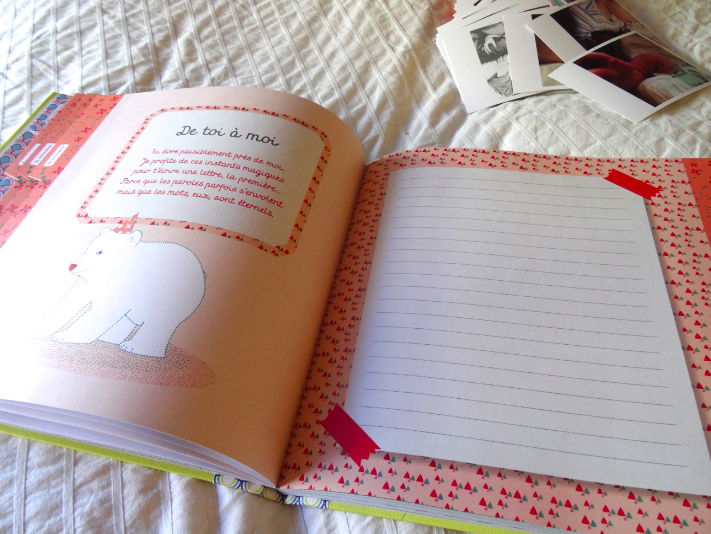 De toi à moi
Tu dors paisiblement près de moi...
Je profite de ces instants magiques
pour t'écrire une lettre, la première...
Parce que les paroles parfois s'envolent
mais que les mots, eux, sont éternels.